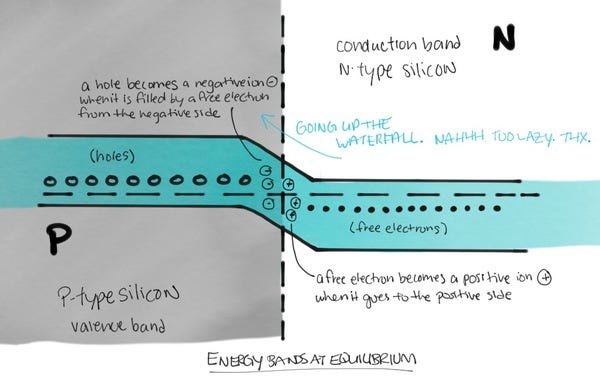 conduction band
N-type silicon
N
a hole becomes a negative ion ⊖
when it is filled by a free electron
from the negative side
GOING UP THE
WATERFALL. NAHHH TOO LAZY. THX.
(holes)
- + - + - +
(free electrons)
P
P-type silicon
valence band
a free electron becomes a positive ion ⊕
when it goes to the positive side
ENERGY BANDS AT EQUILIBRIUM